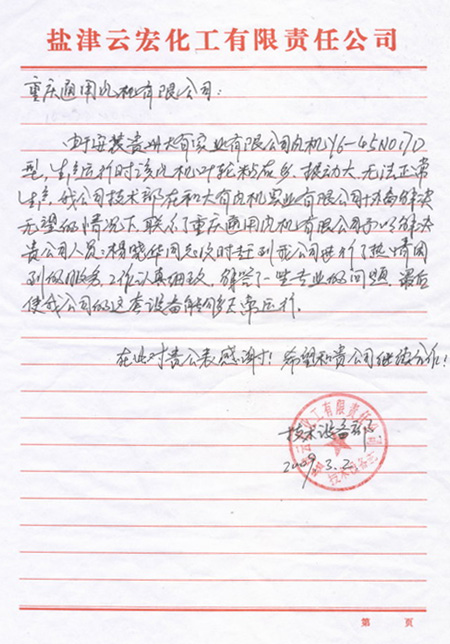 盐津云宏化工有限责任公司
重庆通用风机有限公司：
由于安装贵州大有实业有限公司风机Y6-45No17D
型，生产运行时该风机叶轮粘灰多、振动大、无法正常
生产。我公司技术部在和大有风机实业有限公司协商解决
无望的情况下联系了重庆通用风机有限公司予以解决
贵公司人员：杨晓华同志及时赶到我公司进行了热情周
到的服务，工作认真细致，解答了一些专业的问题，最后
使我公司的这套设备能够正常运行。
在此对贵公表感谢！希望和贵公司继续合作！
技术设备部
2009.3.2
云宏化工有限责任公司
技术设备部
第 页